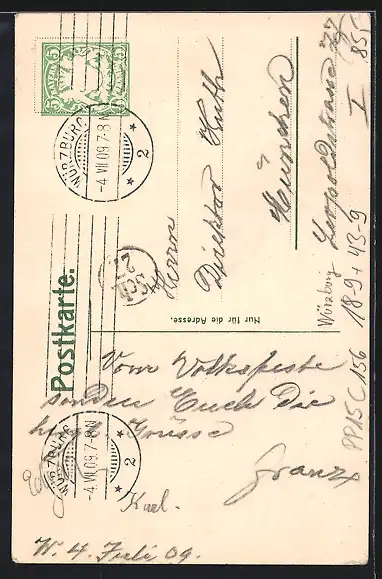 Postkarte.
BAYERN
5 5
WÜRZBURG
-4 VII 09.7-8 N
2
WÜRZBURG
-4 VII 09.7-8 N
2
Herrn
Direktor Huth
München
Leopoldstrasse 77
I
Nur für die Adresse.
Würzburg
PP15C156 18-9+43-9
85,-
Vom Volksfeste
senden Euch die
Grüsse
Franz
Karl.
W. 4. Juli 09.